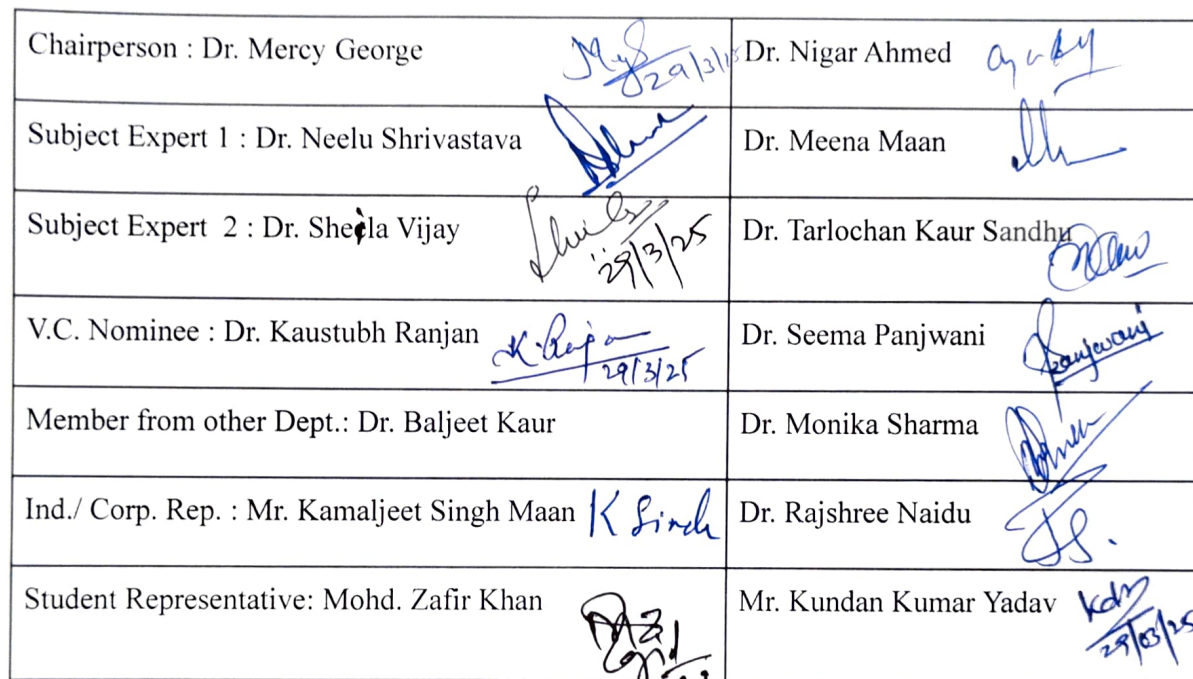 Chairperson : Dr. Mercy George 29/3/25 Dr. Nigar Ahmed
Subject Expert 1 : Dr. Neelu Shrivastava Dr. Meena Maan
Subject Expert 2 : Dr. Sheela Vijay 29/3/25 Dr. Tarlochan Kaur Sandhu
V.C. Nominee : Dr. Kaustubh Ranjan K. Ranjan 29/3/25 Dr. Seema Panjwani Panjwani
Member from other Dept.: Dr. Baljeet Kaur Dr. Monika Sharma
Ind./ Corp. Rep. : Mr. Kamaljeet Singh Maan K Singh Dr. Rajshree Naidu
Student Representative: Mohd. Zafir Khan Mr. Kundan Kumar Yadav 29/03/25